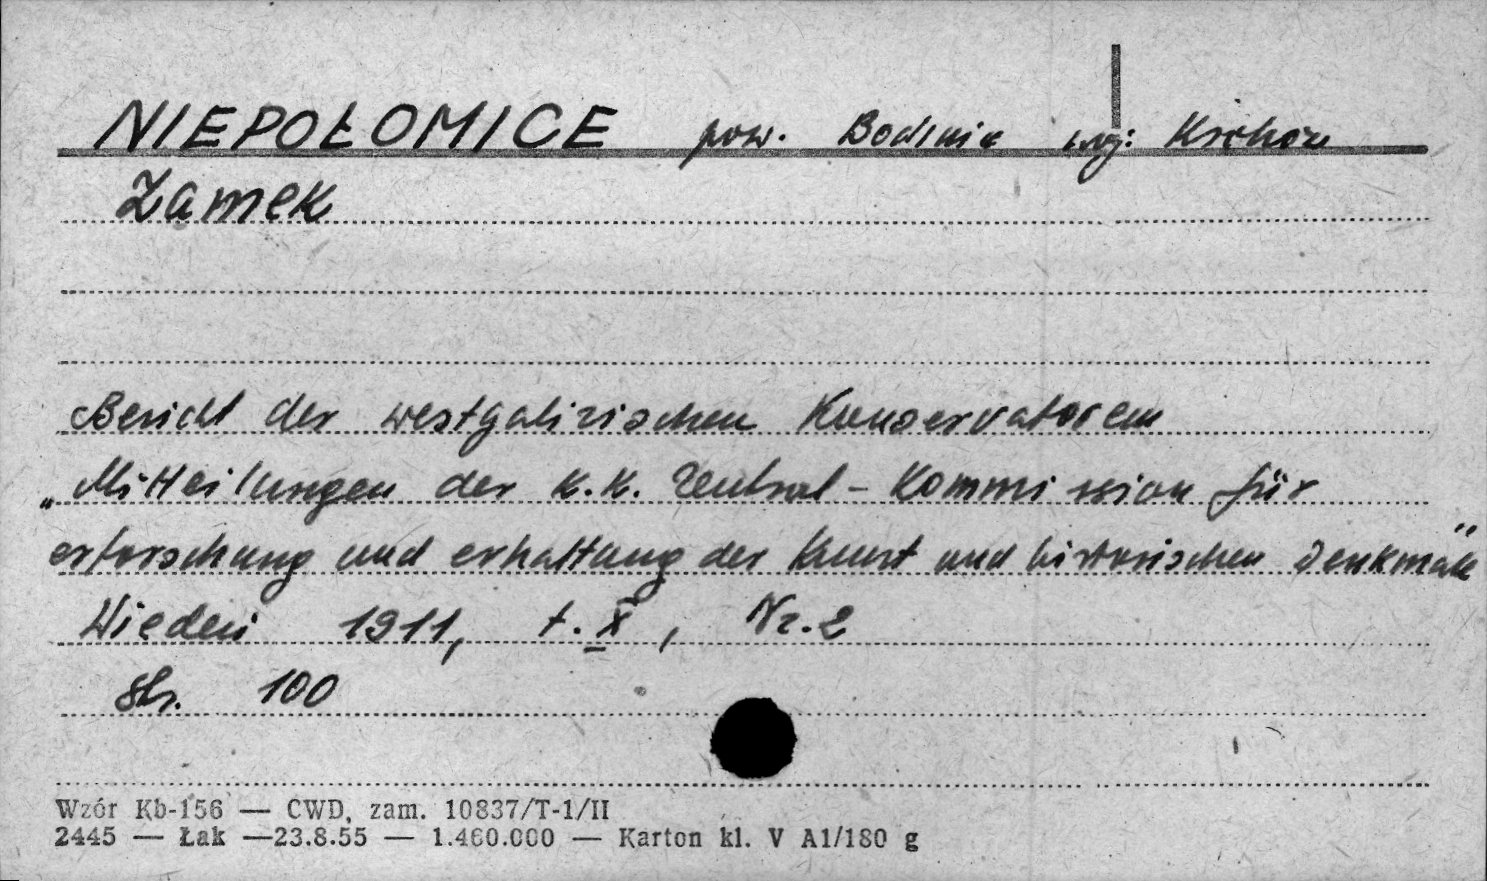 NIEPOŁOMICE pow. Bochnia woj: Kraków
Zamek
Bericht der westgalizischen Konservatoren
„Mitteilungen der K.K. Zentral - Kommission für
erforschung und erhaltung der Kunst und historischen Denkmäle"
Wiedeń 1911, t. X, Nr. 2
str. 100
Wzór Kb-156 — CWD, zam. 10837/T-1/II
2445 — Łak —23.8.55 — 1.460.000 — Karton kl. V A1/180 g